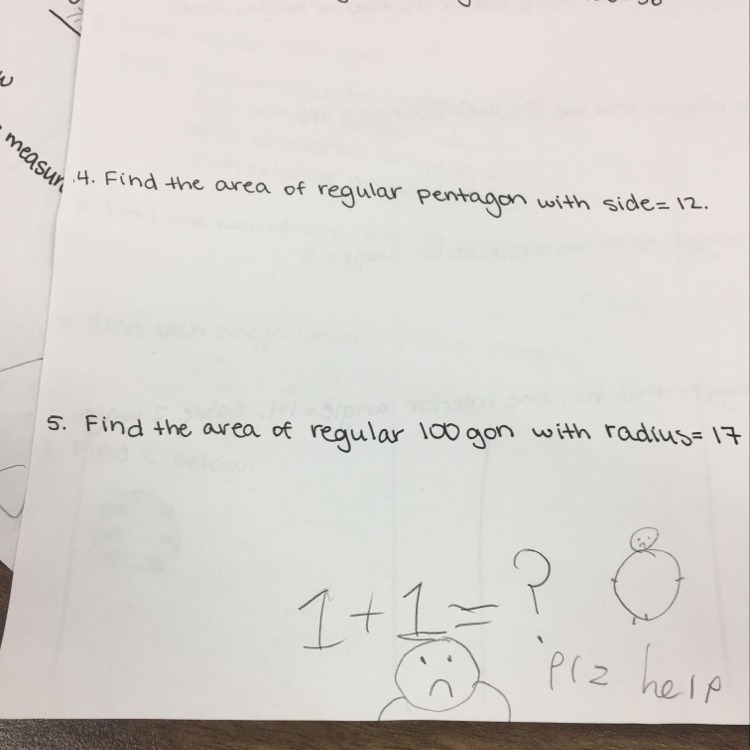 measur
4. Find the area of regular pentagon with side= 12.
5. Find the area of regular 100 gon with radius= 17
1+1=?
plz help